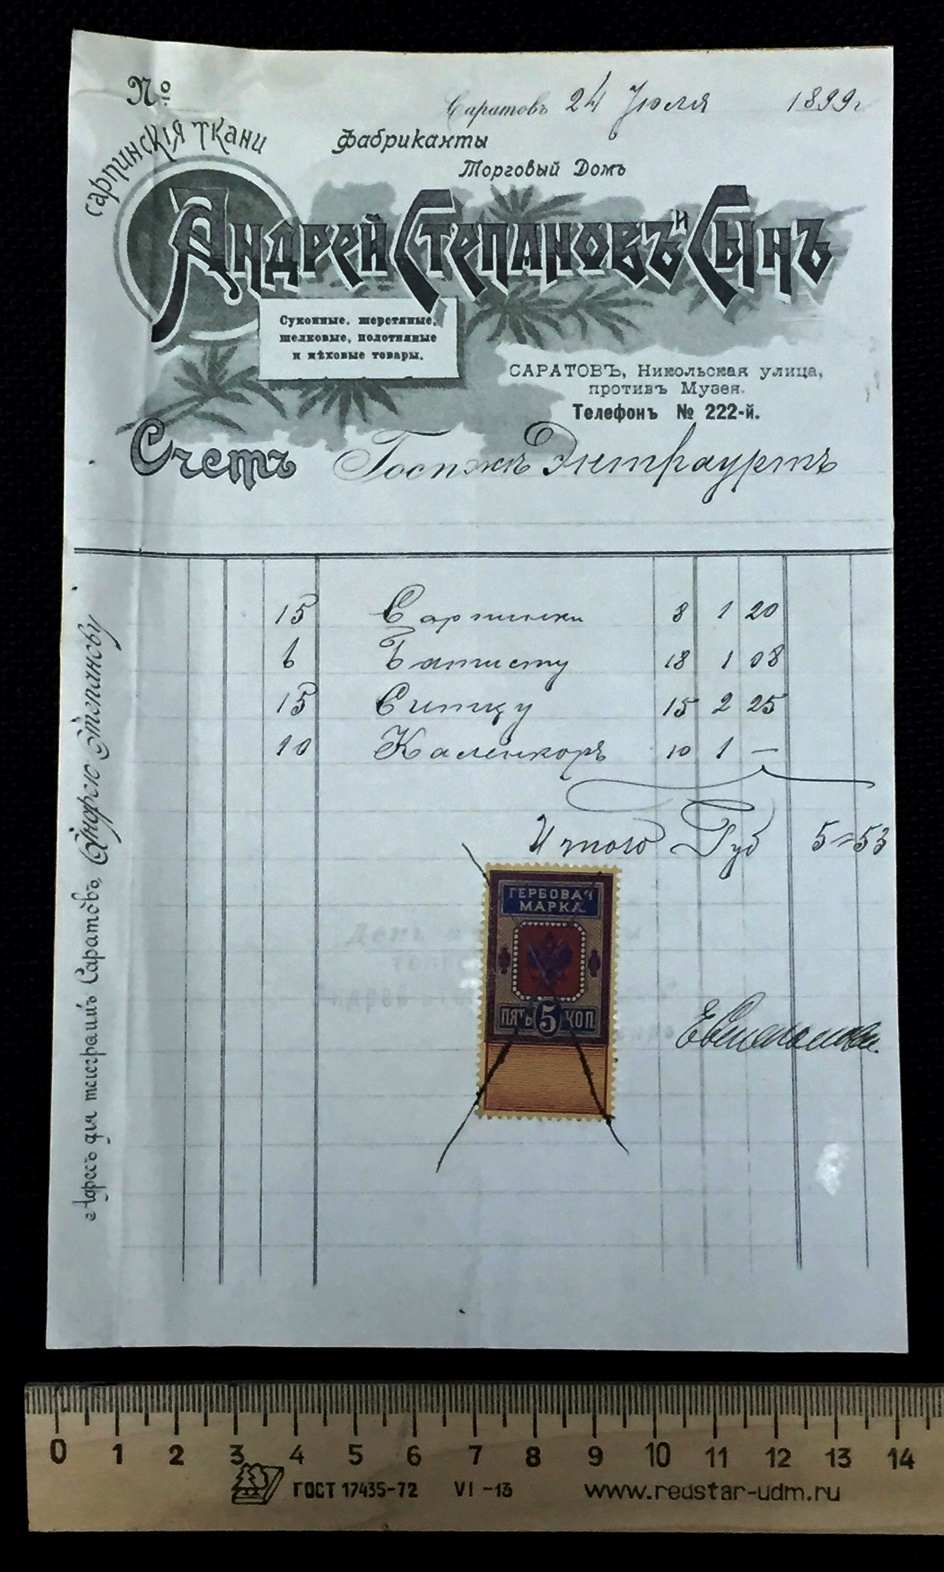 №
Саратовъ 24 Июля 1899 г
сарпинскія ткани
Фабриканты
Торговый Домъ
Андрей Степановъ и Сынъ
Суконные, шерстяные,
шелковые, полотняные
и мѣховые товары.
САРАТОВЪ, Никольская улица,
противъ Музея.
Телефонъ № 222-й.
Счетъ Госпжѣ Энтраурть
15 Сарпинки 8 1 20
6 Батисту 18 1 08
15 Ситцу 15 2 25
10 Каленкоръ 10 1 —
Итого Руб 5=53
ГЕРБОВАЯ
МАРКА
ПЯТЬ 5 КОП
Адресъ для телеграммъ Саратовъ, Андрею Степанову
0 1 2 3 4 5 6 7 8 9 10 11 12 13 14
ГОСТ 17435-72 VI -13 www.redstar-udm.ru